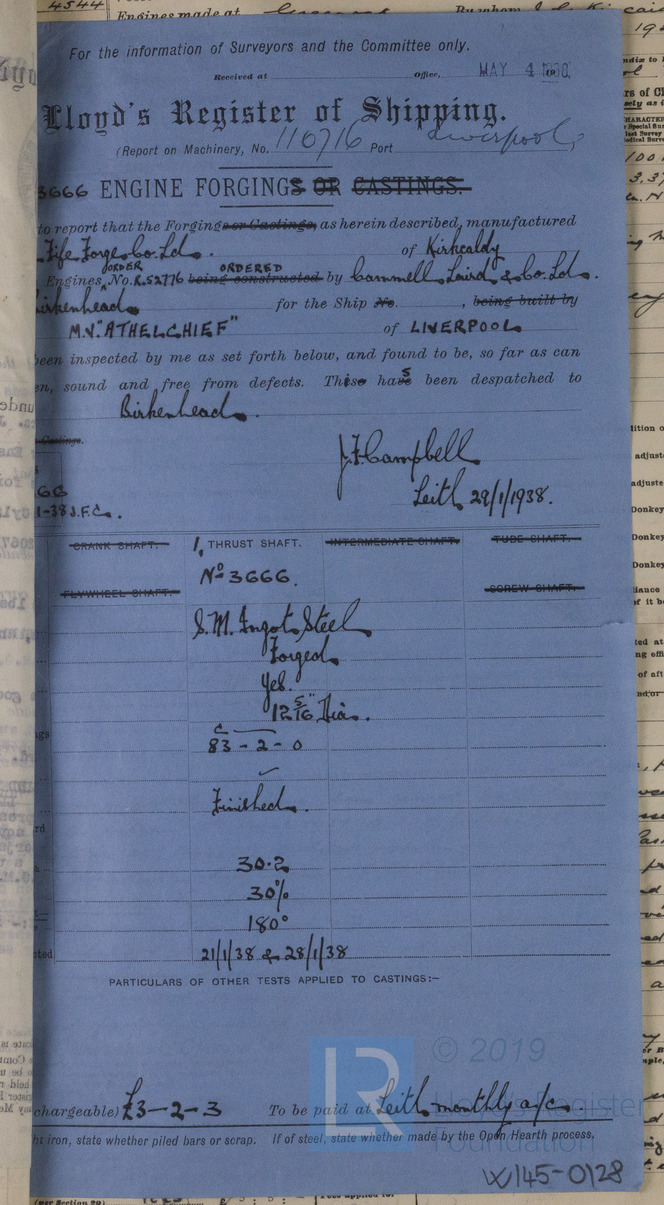 For the information of Surveyors and the Committee only.
Received at Office, MAY 4 1938
Lloyd's Register of Shipping.
(Report on Machinery, No. 110716 Port Liverpool
3666 ENGINE FORGINGS OR CASTINGS.
to report that the Forgings or Castings, as herein described, manufactured
Fife Forge Co. Ld. of Kirkcaldy
ORDER ORDERED
Engines No. K.52776 being constructed by Cammell Laird & Co. Ld.
Birkenhead for the Ship No. , being built by
M.V. "ATHELCHIEF" of LIVERPOOL
been inspected by me as set forth below, and found to be, so far as can
en, sound and free from defects. This has been despatched to
Birkenhead.
Castings.
J.F. Campbell
Leith 29/1/1938.
66
1-38 J.F.C.
CRANK SHAFT. 1, THRUST SHAFT. INTERMEDIATE SHAFT. TUBE SHAFT.
No 3666.
FLYWHEEL SHAFT. SCREW SHAFT.
S.M. Ingot Steel
Forged
Yes.
12 5/16" Dia.
C
83-2-0
Finished.
30.2
30%
180°
21/1/38 & 28/1/38
PARTICULARS OF OTHER TESTS APPLIED TO CASTINGS:—
© 2019
LR
Lloyd's Register
Foundation
chargeable) £3-2-3 To be paid at Leith monthly a/c.
ht iron, state whether piled bars or scrap. If of steel, state whether made by the Open Hearth process.
W145-0128